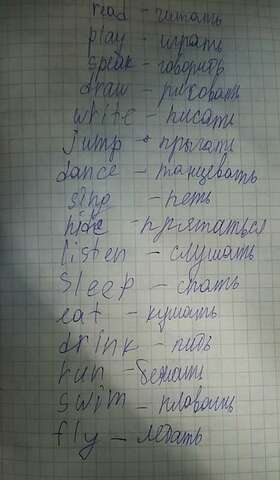 read - читать
play - играть
speak - говорить
draw - рисовать
write - писать
jump - прыгать
dance - танцевать
sing - петь
hide - прятаться
listen - слушать
sleep - спать
eat - кушать
drink - пить
run - бежать
swim - пловать
fly - летать